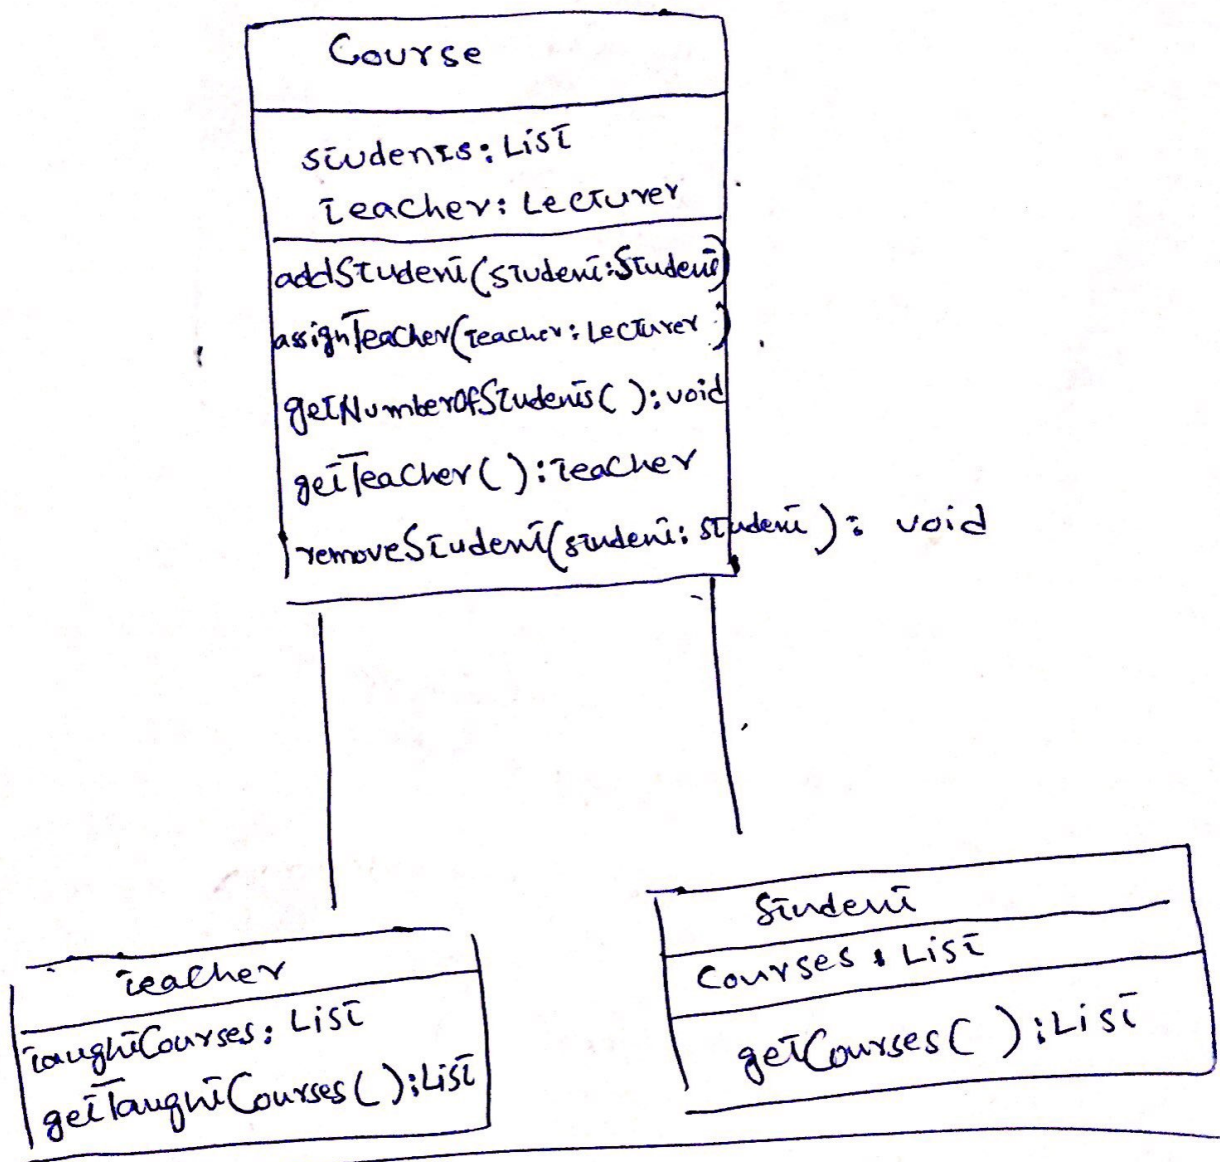 Course
students: List
teacher: Lecturer
addStudent(student:Student)
assignTeacher(teacher: Lecturer)
getNumberOfStudents(): void
getTeacher(): teacher
removeStudent(student: student): void
teacher
taughtCourses: List
getTaughtCourses(): List
Student
Courses: List
getCourses(): List